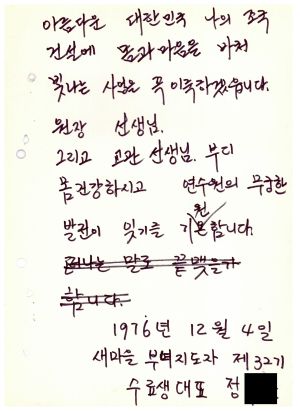 아름다운 대한민국 나의 조국
건설에 몸과 마음을 바쳐
빛나는 사업은 꼭 이룩하겠읍니다.
원장 선생님.
그리고 교관 선생님. 부디
몸건강하시고 연수원의 무궁한
발전이 잊기를 기원합니다.
떠나는 말로 끝맺을가
합니다.
1976년 12월 4일
새마을 부녀지도자 제32기
수료생대표 정